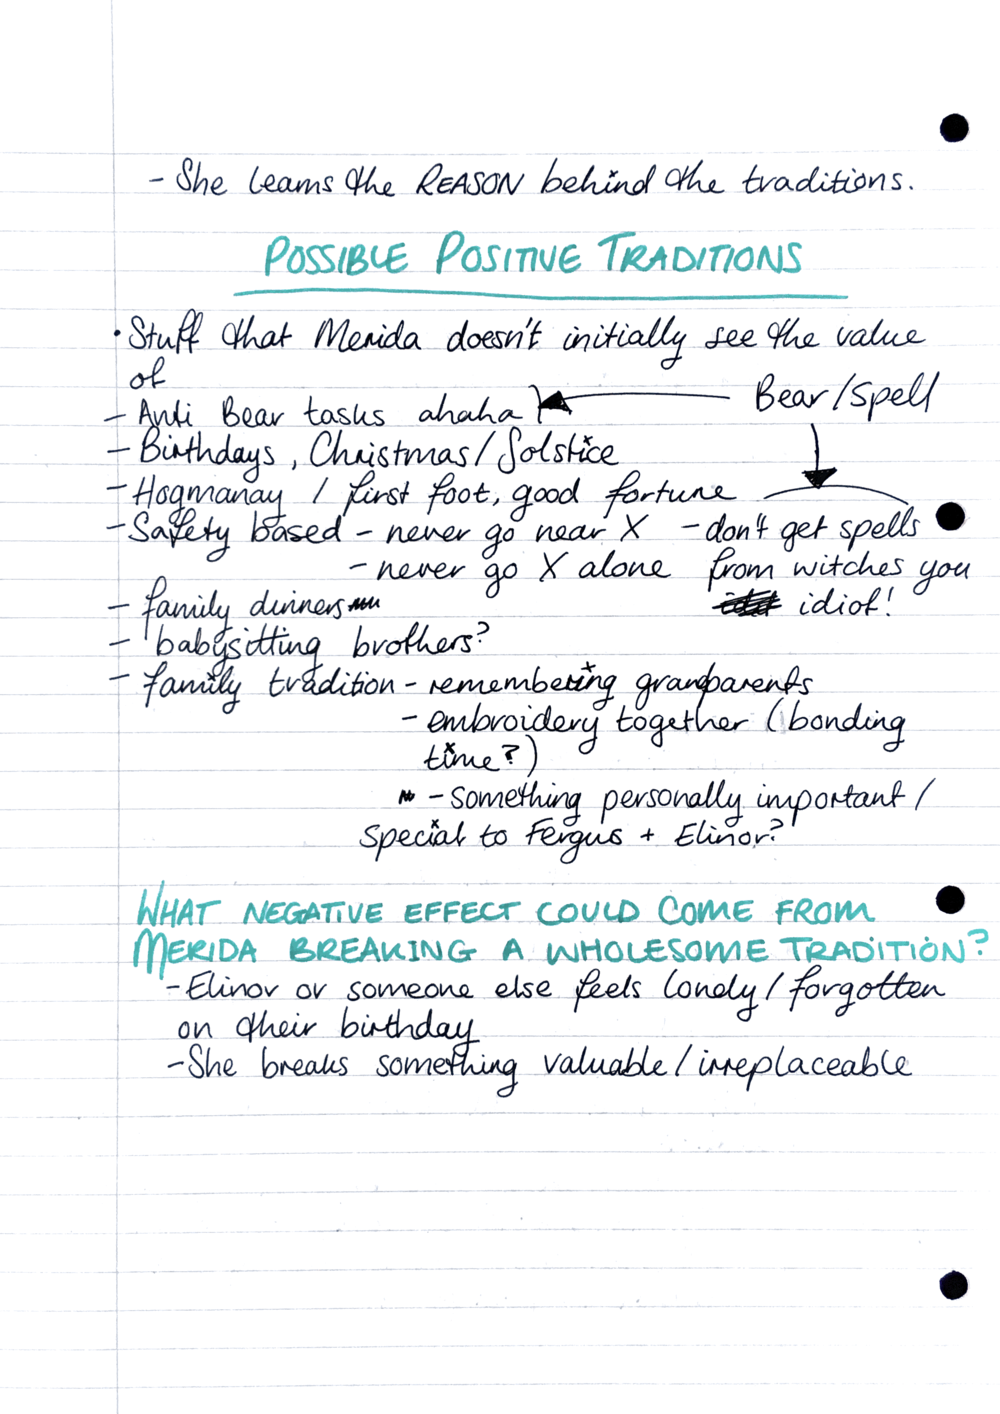 - She learns the REASON behind the traditions.
POSSIBLE POSITIVE TRADITIONS
• Stuff that Merida doesn't initially see the value
of
- Anti Bear tasks ahaha
Bear/Spell
- Birthdays, Christmas/Solstice
- Hogmanay / first foot, good fortune
- Safety based - never go near X - don't get spells
- never go X alone from witches you
- family dinners idiot!
- babysitting brothers?
- family tradition - remembering grandparents
- embroidery together (bonding
time?)
- something personally important /
special to Fergus + Elinor?
WHAT NEGATIVE EFFECT COULD COME FROM
MERIDA BREAKING A WHOLESOME TRADITION?
- Elinor or someone else feels lonely/forgotten
on their birthday
- She breaks something valuable/irreplaceable